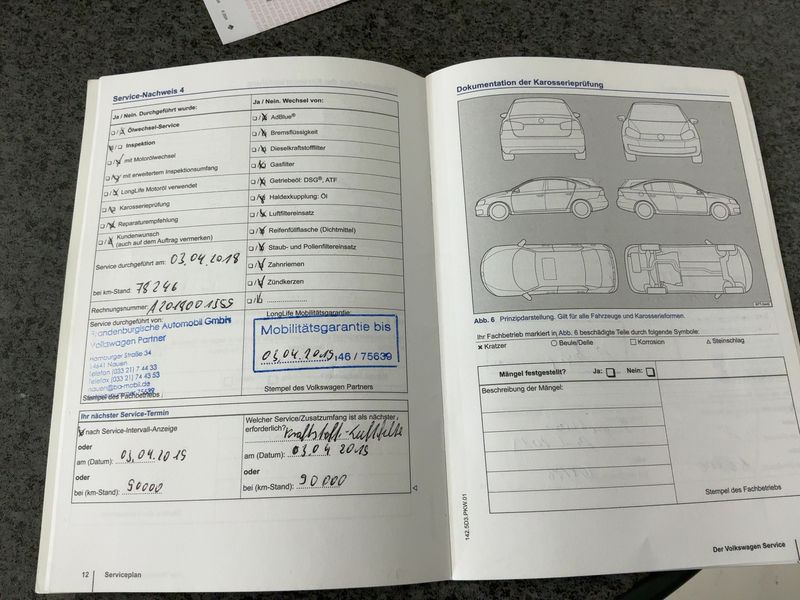 Service-Nachweis 4
Ja / Nein. Durchgeführt wurde:
Ölwechsel-Service
Inspektion
mit Motorölwechsel
mit erweitertem Inspektionsumfang
LongLife Motoröl verwendet
Karosserieprüfung
Reparaturempfehlung
Kundenwunsch
(auch auf dem Auftrag vermerken)
Service durchgeführt am: 03.04.2018
bei km-Stand: 78246
Rechnungsnummer:
Service durchgeführt von:
Brandenburgische Automobil GmbH
Volkswagen Partner
Hamburger Straße 34
14641 Nauen
Telefon (033 21) 7 44 33
Telefax (033 21) 74 43 33
nauen@ba-mobil.de
Stempel des Fachbetriebs
Ja / Nein. Wechsel von:
AdBlue®
Bremsflüssigkeit
Dieselkraftstofffilter
Gasfilter
Getriebeöl: DSG®, ATF
Haldexkupplung: Öl
Luftfiltereinsatz
Reifenfüllflasche (Dichtmittel)
Staub- und Pollenfiltereinsatz
Zahnriemen
Zündkerzen
LongLife Mobilitätsgarantie:
Mobilitätsgarantie bis
03.04.2019 46 / 75639
Stempel des Volkswagen Partners
Ihr nächster Service-Termin
nach Service-Intervall-Anzeige
oder
am (Datum): 03.04.2019
oder
bei (km-Stand): 90000
Welcher Service/Zusatzumfang ist als nächster
erforderlich?
am (Datum): 03.04 2019
oder
bei (km-Stand): 90000
12 Serviceplan
Dokumentation der Karosserieprüfung
Abb. 6 Prinzipdarstellung. Gilt für alle Fahrzeuge und Karosserieformen.
Ihr Fachbetrieb markiert in Abb. 6 beschädigte Teile durch folgende Symbole:
× Kratzer ○ Beule/Delle □ Korrosion △ Steinschlag
Mängel festgestellt? Ja: Nein:
Beschreibung der Mängel:
Stempel des Fachbetriebs
142.5D3.PKW.01
Der Volkswagen Service